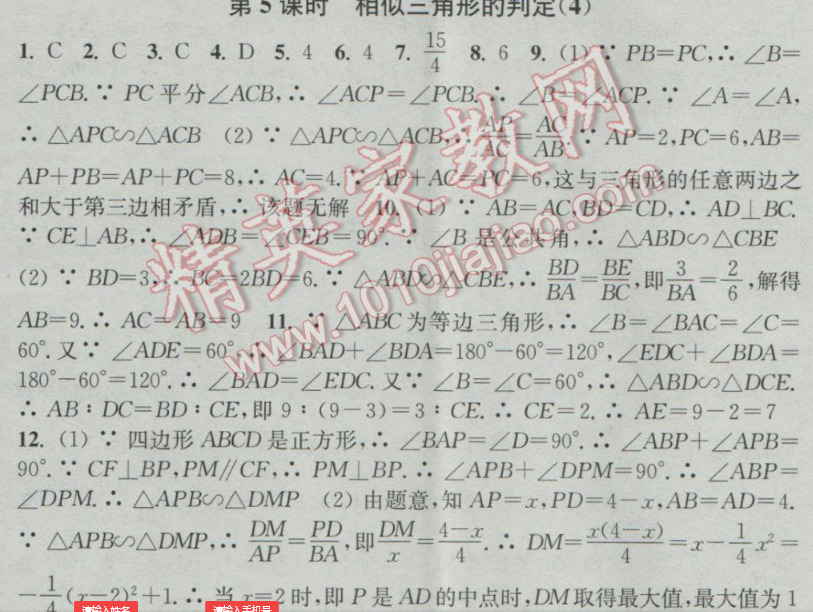 第5课时 相似三角形的判定(4)
1. C 2. C 3. C 4. D 5. 4 6. 4 7. 15/4 8. 6 9. (1) ∵ PB=PC,∴ ∠B=
∠PCB. ∵ PC 平分∠ACB,∴ ∠ACP=∠PCB. ∴ ∠B=∠ACP. ∵ ∠A=∠A,
∴ △APC∽△ACB (2) ∵ △APC∽△ACB,∴ AP/AC=AC/AB. ∵ AP=2,PC=6,AB=
AP+PB=AP+PC=8,∴ AC=4. ∵ AP+AC=PC=6,这与三角形的任意两边之
和大于第三边相矛盾,∴ 该题无解 10. (1) ∵ AB=AC,BD=CD,∴ AD⊥BC.
∵ CE⊥AB,∴ ∠ADB=∠CEB=90°. ∵ ∠B 是公共角,∴ △ABD∽△CBE
(2) ∵ BD=3,∴ BC=2BD=6. ∵ △ABD∽△CBE,∴ BD/BA=BE/BC,即3/BA=2/6,解得
AB=9. ∴ AC=AB=9 11. ∵ △ABC 为等边三角形,∴ ∠B=∠BAC=∠C=
60°. 又∵ ∠ADE=60°,∴ ∠BAD+∠BDA=180°-60°=120°,∠EDC+∠BDA=
180°-60°=120°. ∴ ∠BAD=∠EDC. 又∵ ∠B=∠C=60°,∴ △ABD∽△DCE.
∴ AB∶DC=BD∶CE,即 9∶(9-3)=3∶CE. ∴ CE=2. ∴ AE=9-2=7
12. (1) ∵ 四边形 ABCD 是正方形,∴ ∠BAP=∠D=90°. ∴ ∠ABP+∠APB=
90°. ∵ CF⊥BP,PM∥CF,∴ PM⊥BP. ∴ ∠APB+∠DPM=90°. ∴ ∠ABP=
∠DPM. ∴ △APB∽△DMP (2) 由题意,知 AP=x,PD=4-x,AB=AD=4.
∵ △APB∽△DMP,∴ DM/AP=PD/BA,即DM/x=(4-x)/4. ∴ DM=x(4-x)/4=x-1/4x²=
-1/4(x-2)²+1. ∴ 当 x=2 时,即 P 是 AD 的中点时,DM 取得最大值,最大值为 1
精英家教网
www.1010jiajiao.com
请输入姓名 请输入手机号